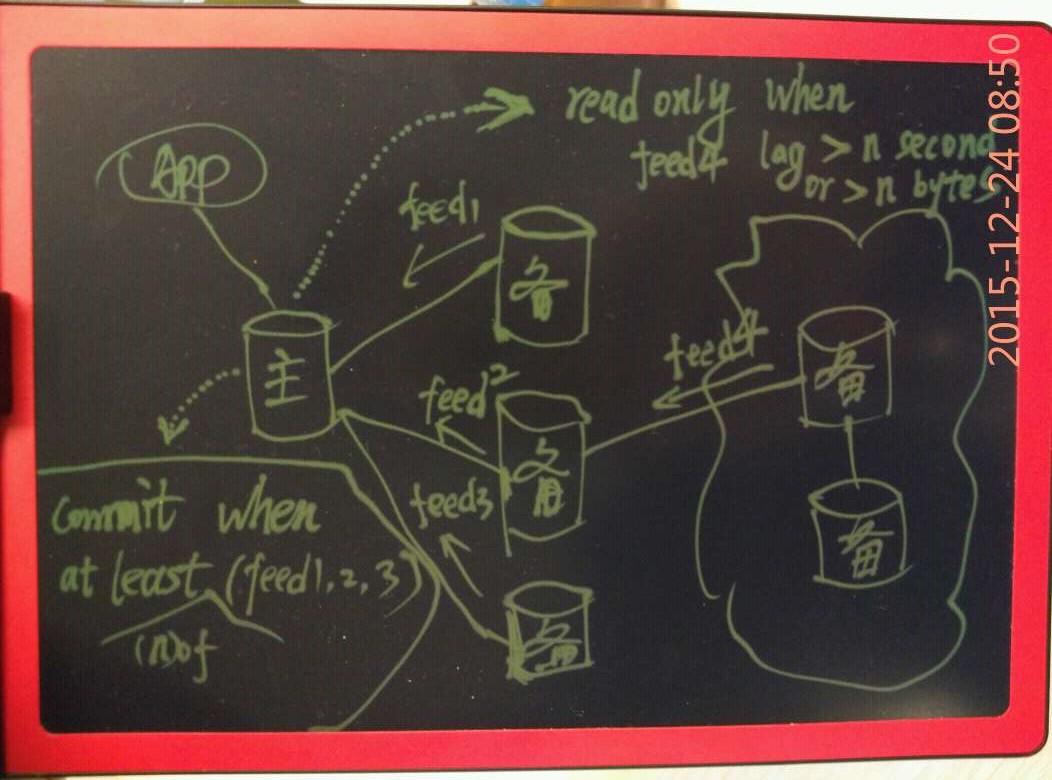 read only when
feed4 lag > n second
or > n bytes
App
feed1
备
主
feed2
备
feed4
备
feed3
备
备
Commit when
at least (feed1,2,3)
(n)of
2015-12-24 08:50